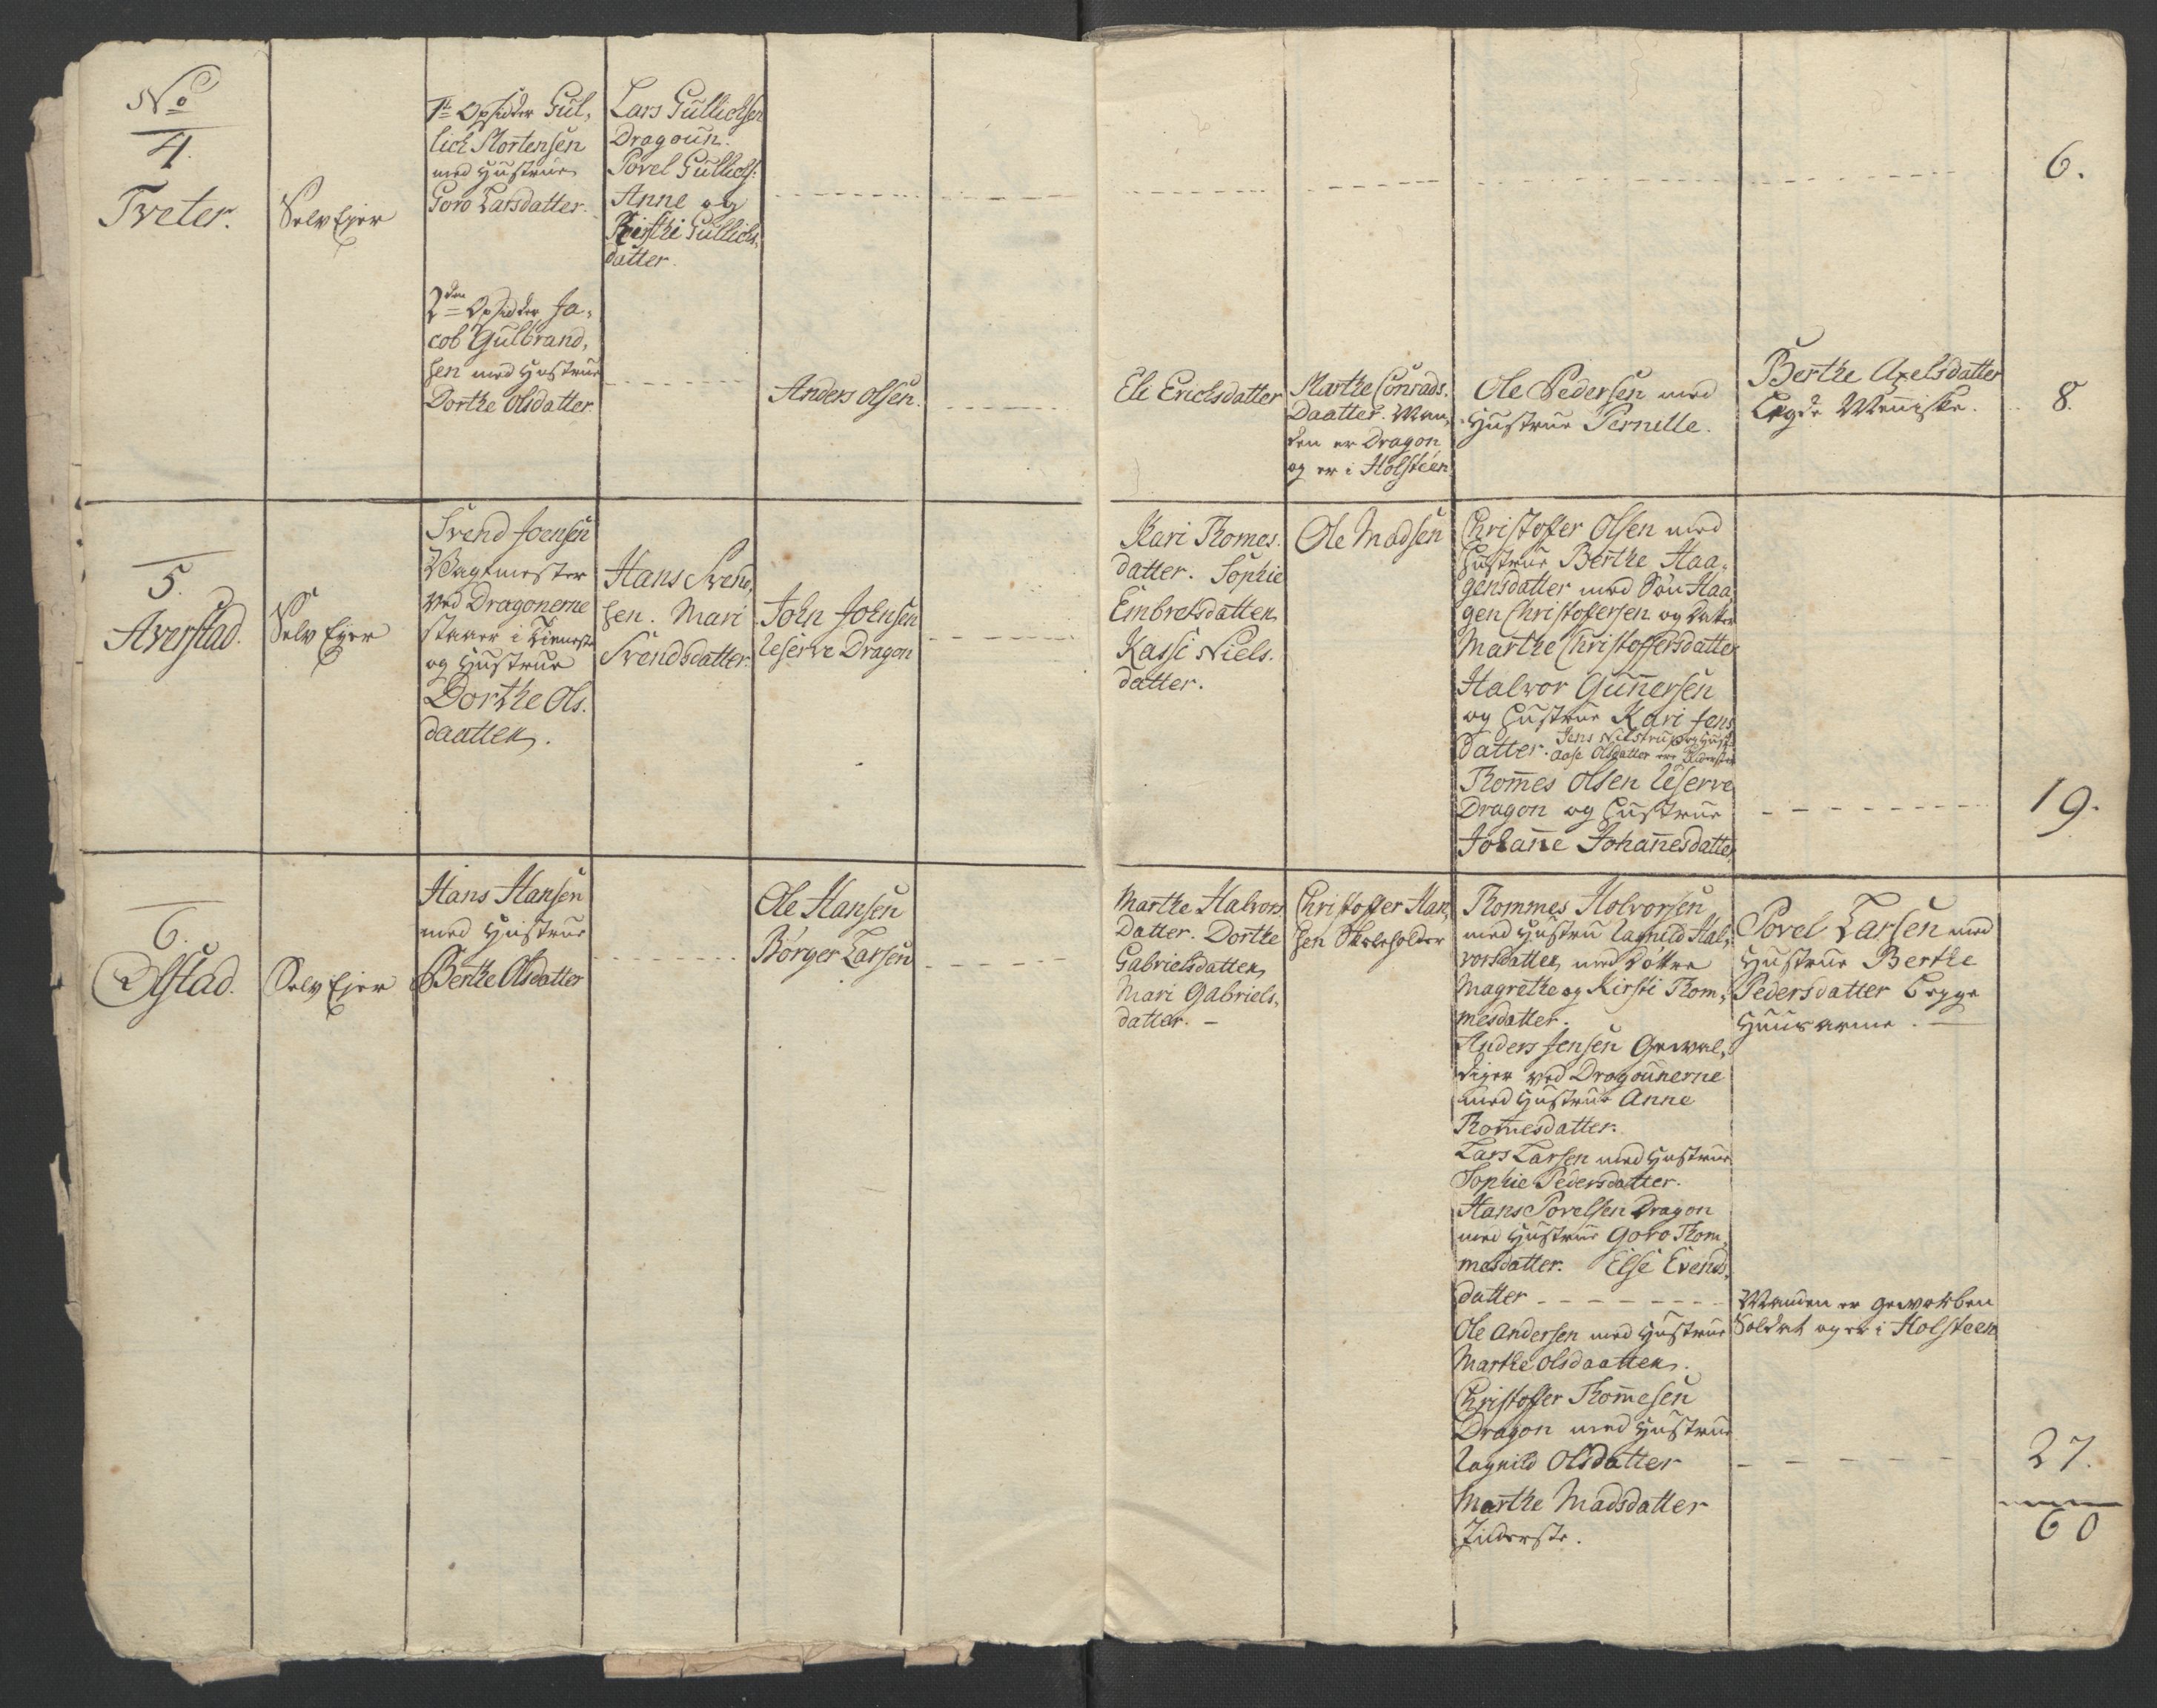 No
4.
Tveter.
Selv Ejer
1te Opsidder Gul,
lich Mortensen
med Hustrue
Goro Larsdatter.
Lars Gullichsen
Dragoun.
Povel Gullichs:
Anne og
Kirsti Gullichs,
datter.
6.
2den Opsidder Ja,
cob Gulbrand,
sen med Hustrue
Dorthe Olsdatter
Anders Olsen.
Eli Erichsdatter
Marthe Conrads.
Daatter. Man,
den er Dragon
og er i Holsteen
Ole Pedersen med
Hustrue Pernille.
Berthe Axelsdatter
Legde Menniske.
8.
5.
Averstad.
Selv Ejer
Svend Joensen
Vagtmester
ved Dragonerne
staaer i Tieneste
og Hustrue
Dorthe Ols.
daatter.
Hans Svend,
sen. Mari
Svendsdatter.
John Johnsen
Reserve Dragon
Kari Thomes.
datter. Sophie
Embretsdatter
Kassi Niels.
datter.
Ole Madsen
Christoffer Olsen med
Hustrue Berthe Haa,
gensdatter med Søn Haa,
gen Christoffersen og Datter
Marthe Christoffersdatter
Halvor Gunnersen
og Hustrue Kari Jens
datter. Jens Nilstrup og Hust:
Aase Olsdatter ere Inderster
Thommes Olsen Reserve
Dragon og Hustrue
Johanne Johannesdatter
19.
6.
Olstad.
Selv Ejer
Hans Hansen
med Hustrue
Berthe Olsdatter
Ole Hansen
Børger Larsen
Marthe Halvors
Datter. Dorthe
Gabrielsdatter
Mari Gabriels,
datter. -
Christoffer Han,
sen Skoleholder
Thommes Holvorsen
med Hustru Ragnild Hal,
vorsdatter med Døttre
Magrethe og Kirsti Thom,
mesdatter.
Anders Jensen Gewal,
diger ved Dragounerne
med Hustrue Anne
Thomesdatter.
Lars Larsen med Hustrue
Sophie Pedersdatter.
Hans Povelsen Dragon
med Hustrue Goro Thom,
mesdatter. Else Evends,
datter
Ole Andersen med Hustrue
Marthe Olsdaatter.
Christoffer Thommesen
Dragon med Hustrue
Ragnild Olsdatter
Marthe Madsdatter
Inderste.
Povel Larsen med
Hustrue Berthe
Pedersdatter begge
Huusarme.
Manden er geworben
Soldat og er i Holsteen
27.
60